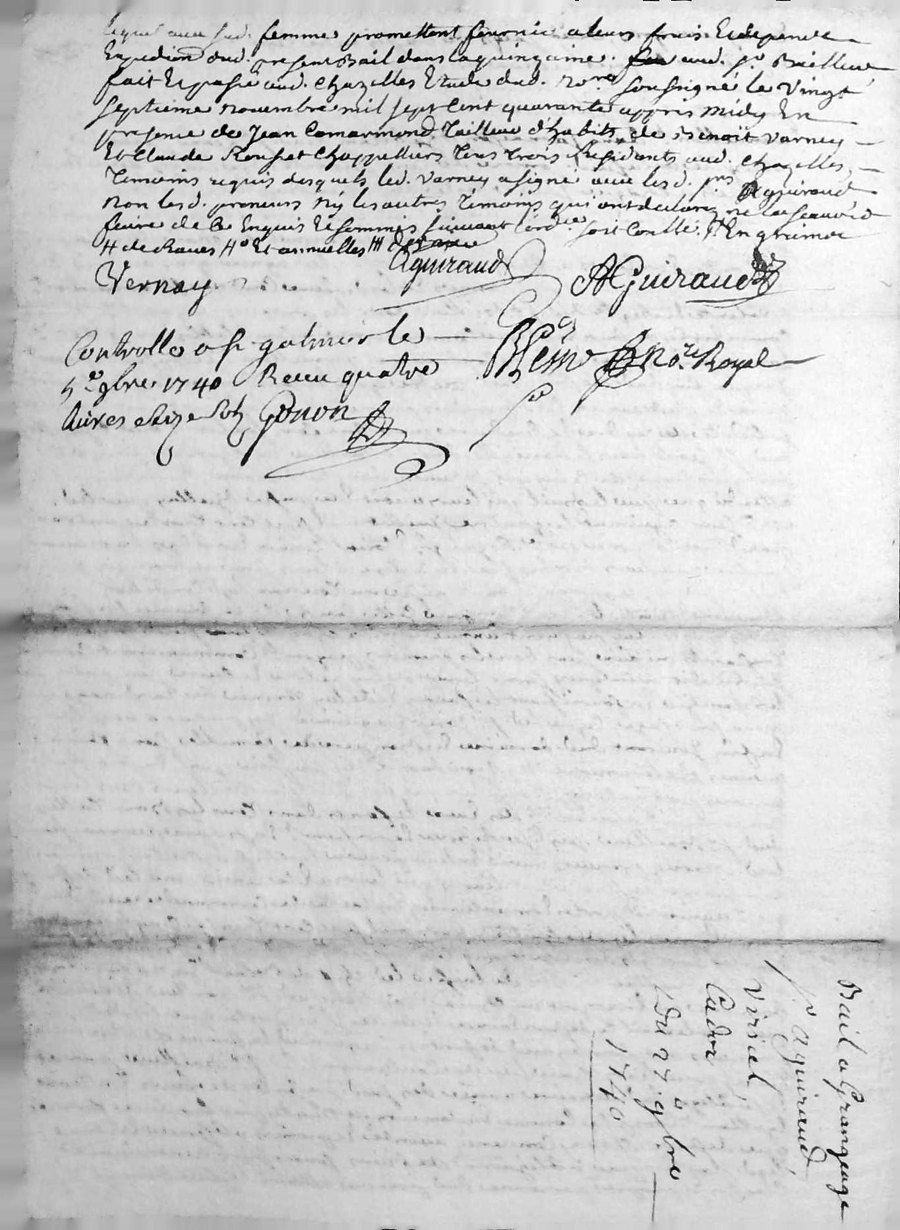 femme promettant fournir a leurs frais Et depends
Expedition dud. present Bail dans la quinzaine aud. Sr. Bailleur
fait Et passé aud. chazelles Etude dud. nore. soussigné le Vingt
septieme novembre mil sept Cent quarante appres midy En
presence de Jean Comarmond Tailleur d'habits, de Benoit Varney
Et Claude Rousset Chappelliers Tous trois Residants aud. Chazelles,
Temoins requis desquels led. Varney a signé avec lesd. Aguiraud
non lesd. preneurs ny les autres Temoins qui ont declarés ne le scavoir
faire de Ce Enquis Et sommés suivant l'ordce. soit Conllé.
# de Raves # Et annuelles
Aguiraud
Vernay
AGuiraud
Controllé a St. galmier le
5e. 9bre. 1740 Receu quatre
livres seize sols Gonon
nore. Royal
Bail a Grangeage
Sr. aguiraud,
Viricel,
Cador
Du 27e. 9bre
1740